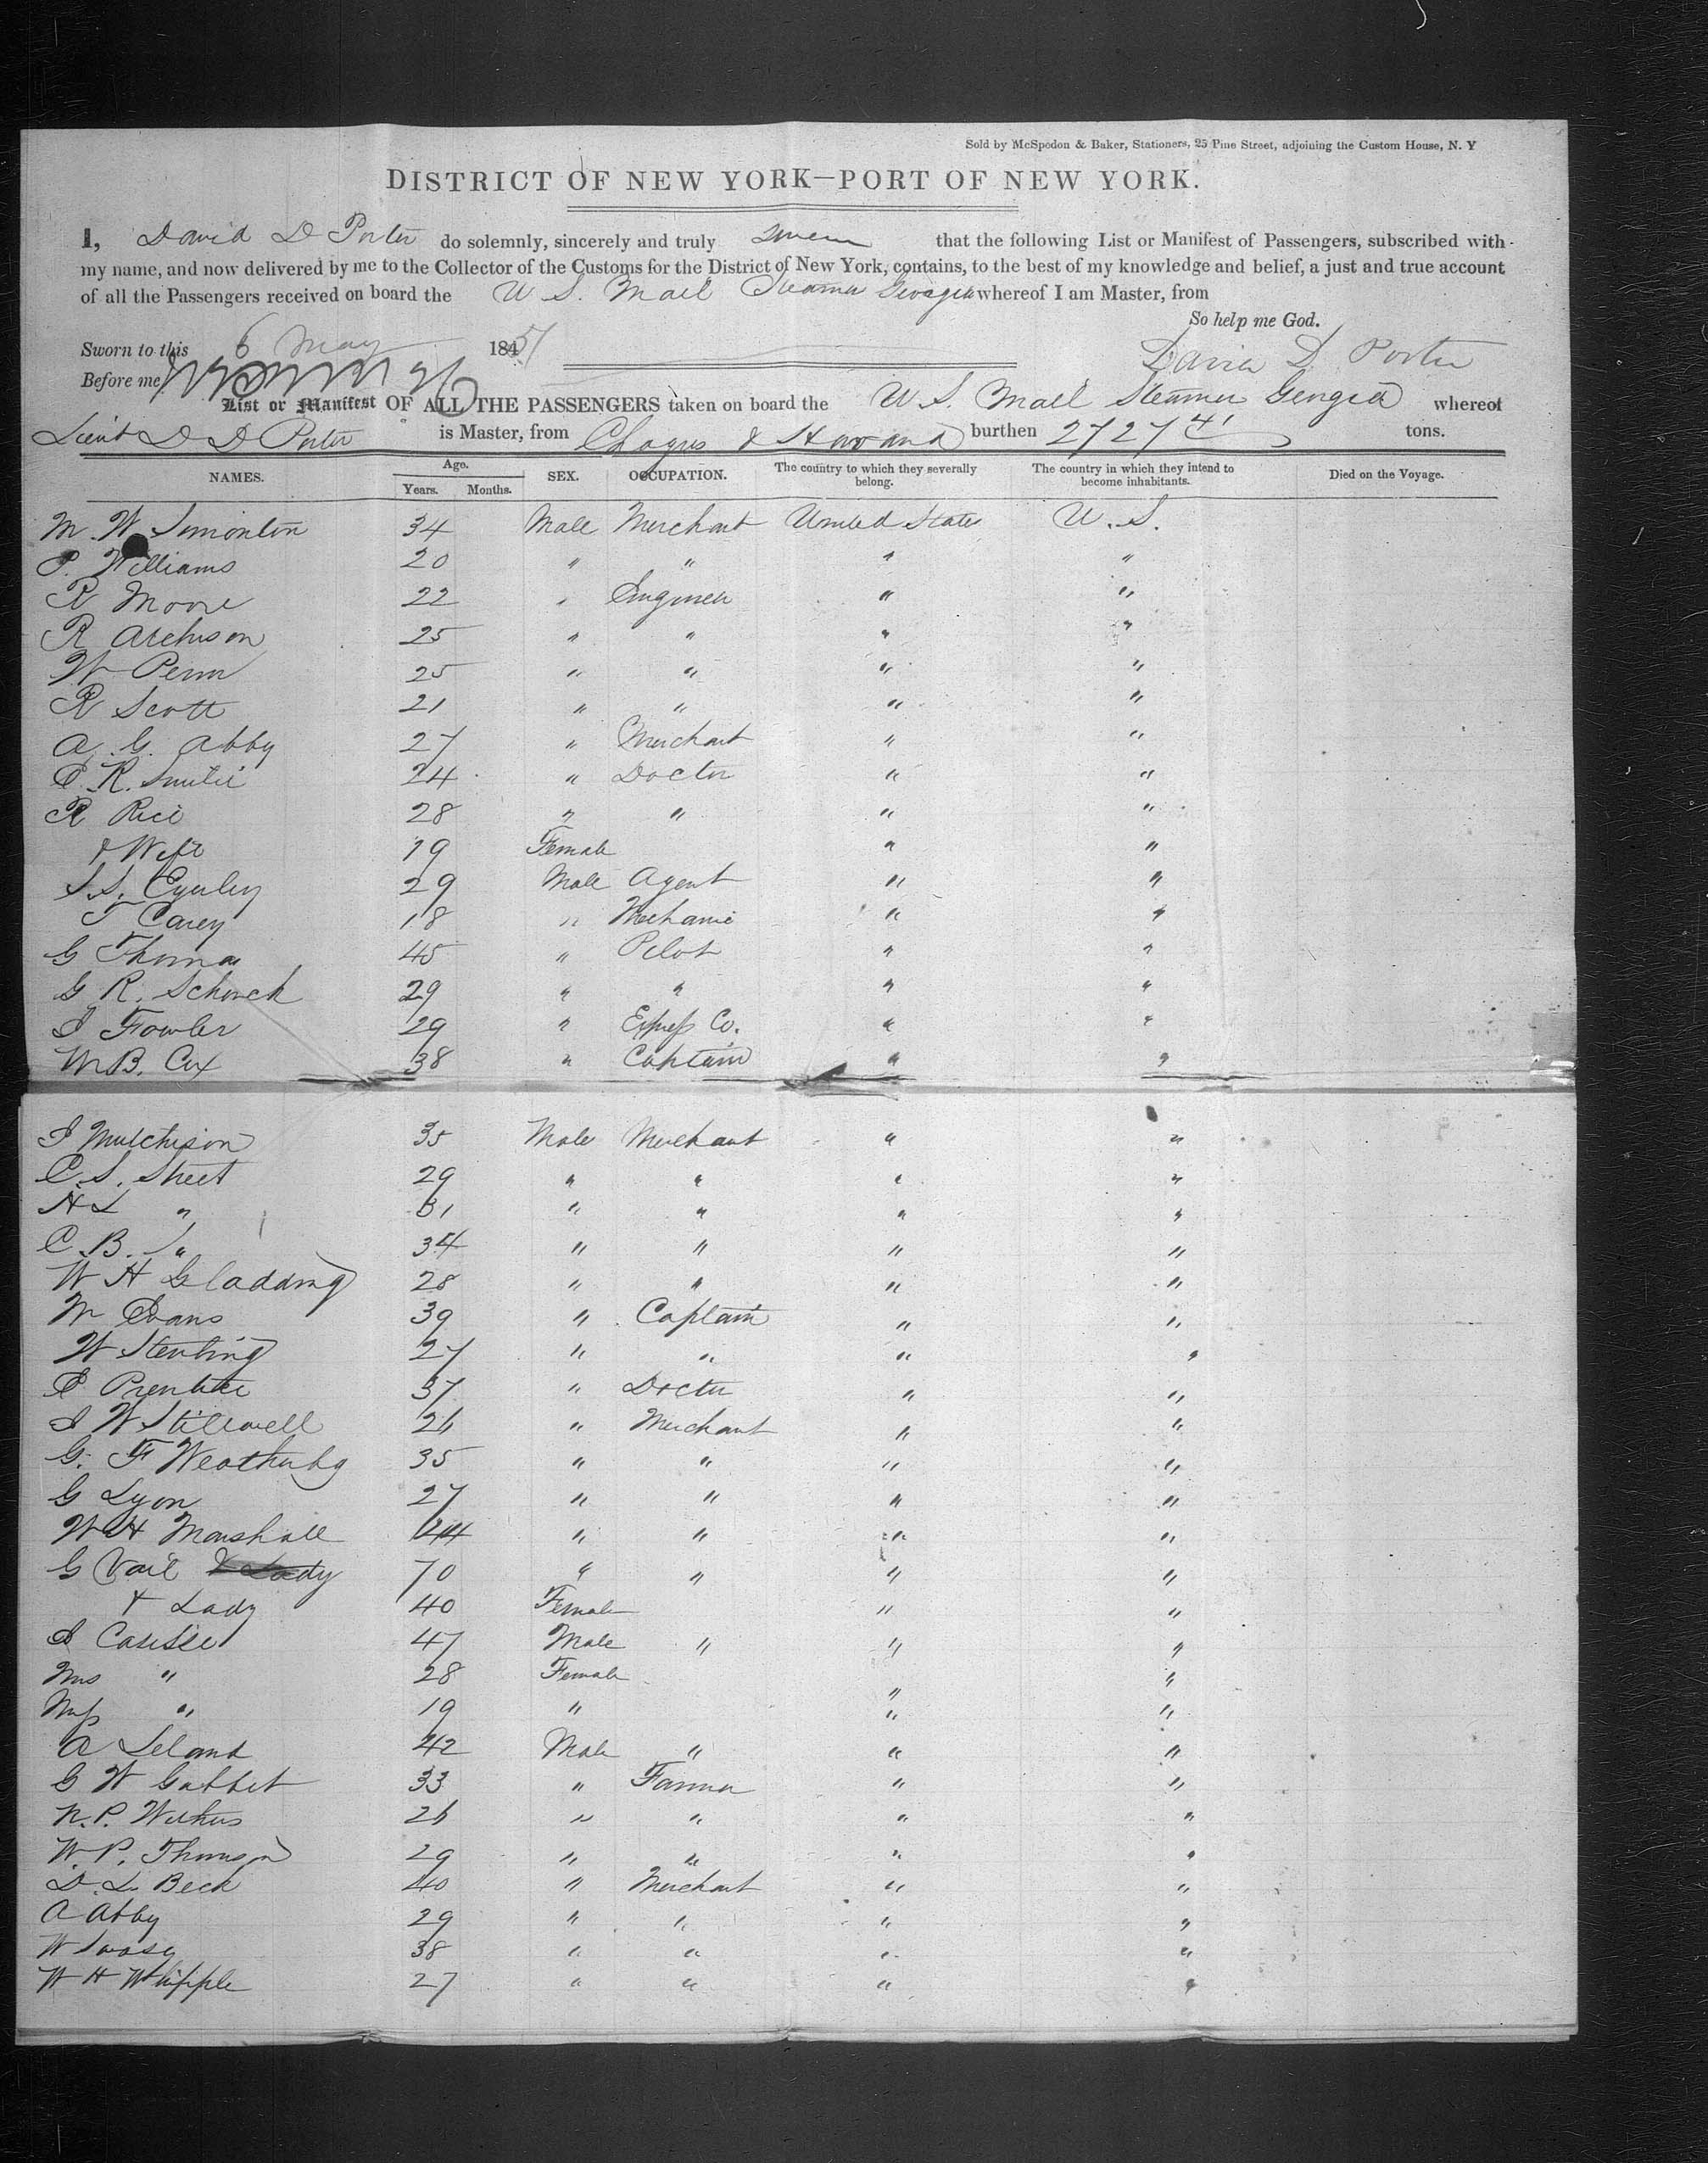 Sold by McSpedon & Baker, Stationers, 25 Pine Street, adjoining the Custom House, N. Y
DISTRICT OF NEW YORK—PORT OF NEW YORK.
I, David D Porter do solemnly, sincerely and truly swear that the following List or Manifest of Passengers, subscribed with
my name, and now delivered by me to the Collector of the Customs for the District of New York, contains, to the best of my knowledge and belief, a just and true account
of all the Passengers received on board the U S. Mail Steamer Georgia whereof I am Master, from
So help me God.
Sworn to this 6 May 1851
David D. Porter
Before me
List or Manifest OF ALL THE PASSENGERS taken on board the U S. Mail Steamer Georgia whereof
Lieut D D Porter is Master, from Chagres & Havana burthen 2727 tons.
NAMES. Age. Years. Months. SEX. OCCUPATION. The country to which they severally belong. The country in which they intend to become inhabitants. Died on the Voyage.
M. W Simonton 34 Male Merchant United States U. S.
P. Williams 20 " " " "
R Moore 22 " Engineer " "
R Atchison 25 " " " "
W Penn 25 " " " "
R Scott 21 " " " "
A. G. Abby 27 " Merchant " "
R. Smilie 24 " Doctor " "
R Rice 28 " " " "
& Wife 19 Female " "
S. S. 29 Male Agent " "
T Carey 18 " Mechanic " "
G Thomas 45 " Pilot " "
G R. Schenck 29 " " " "
J Fowler 29 " Express Co. " "
W B. Cox 38 " Captain " "
J Mutchison 35 Male Merchant " "
C. S. Street 29 " " " "
H L " 31 " " " "
C. B. " 34 " " " "
W H Gladding 28 " " " "
W Evans 39 " Captain " "
W Sterling 27 " " " "
Prentice 37 " Doctor " "
J W Stilwell 26 " Merchant " "
G. F Weatherby 35 " " " "
G Lyon 27 " " " "
W H Marshall 44 " " " "
G Vail & Lady 70 " " " "
& Lady 40 Female " "
J Carlisle 47 Male " " "
Mrs " 28 Female " "
Miss " 19 " " "
A Leland 42 Male " " "
G W Gabbet 33 " Farmer " "
N. P. 26 " " " "
W. P. Thomson 29 " " " "
D. L. Beck 40 " Merchant " "
A Abby 29 " " " "
W 38 " " " "
W H Whipple 27 " " " "